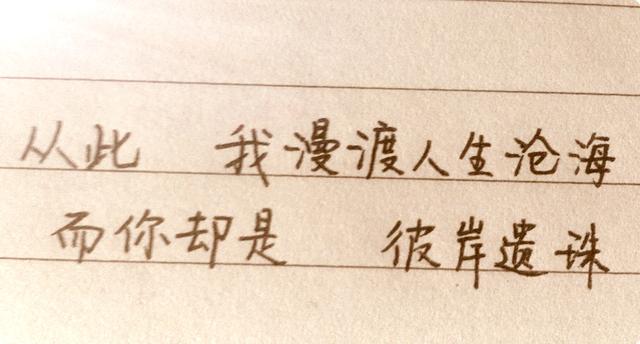 从此 我漫渡人生沧海
而你却是 彼岸遗珠